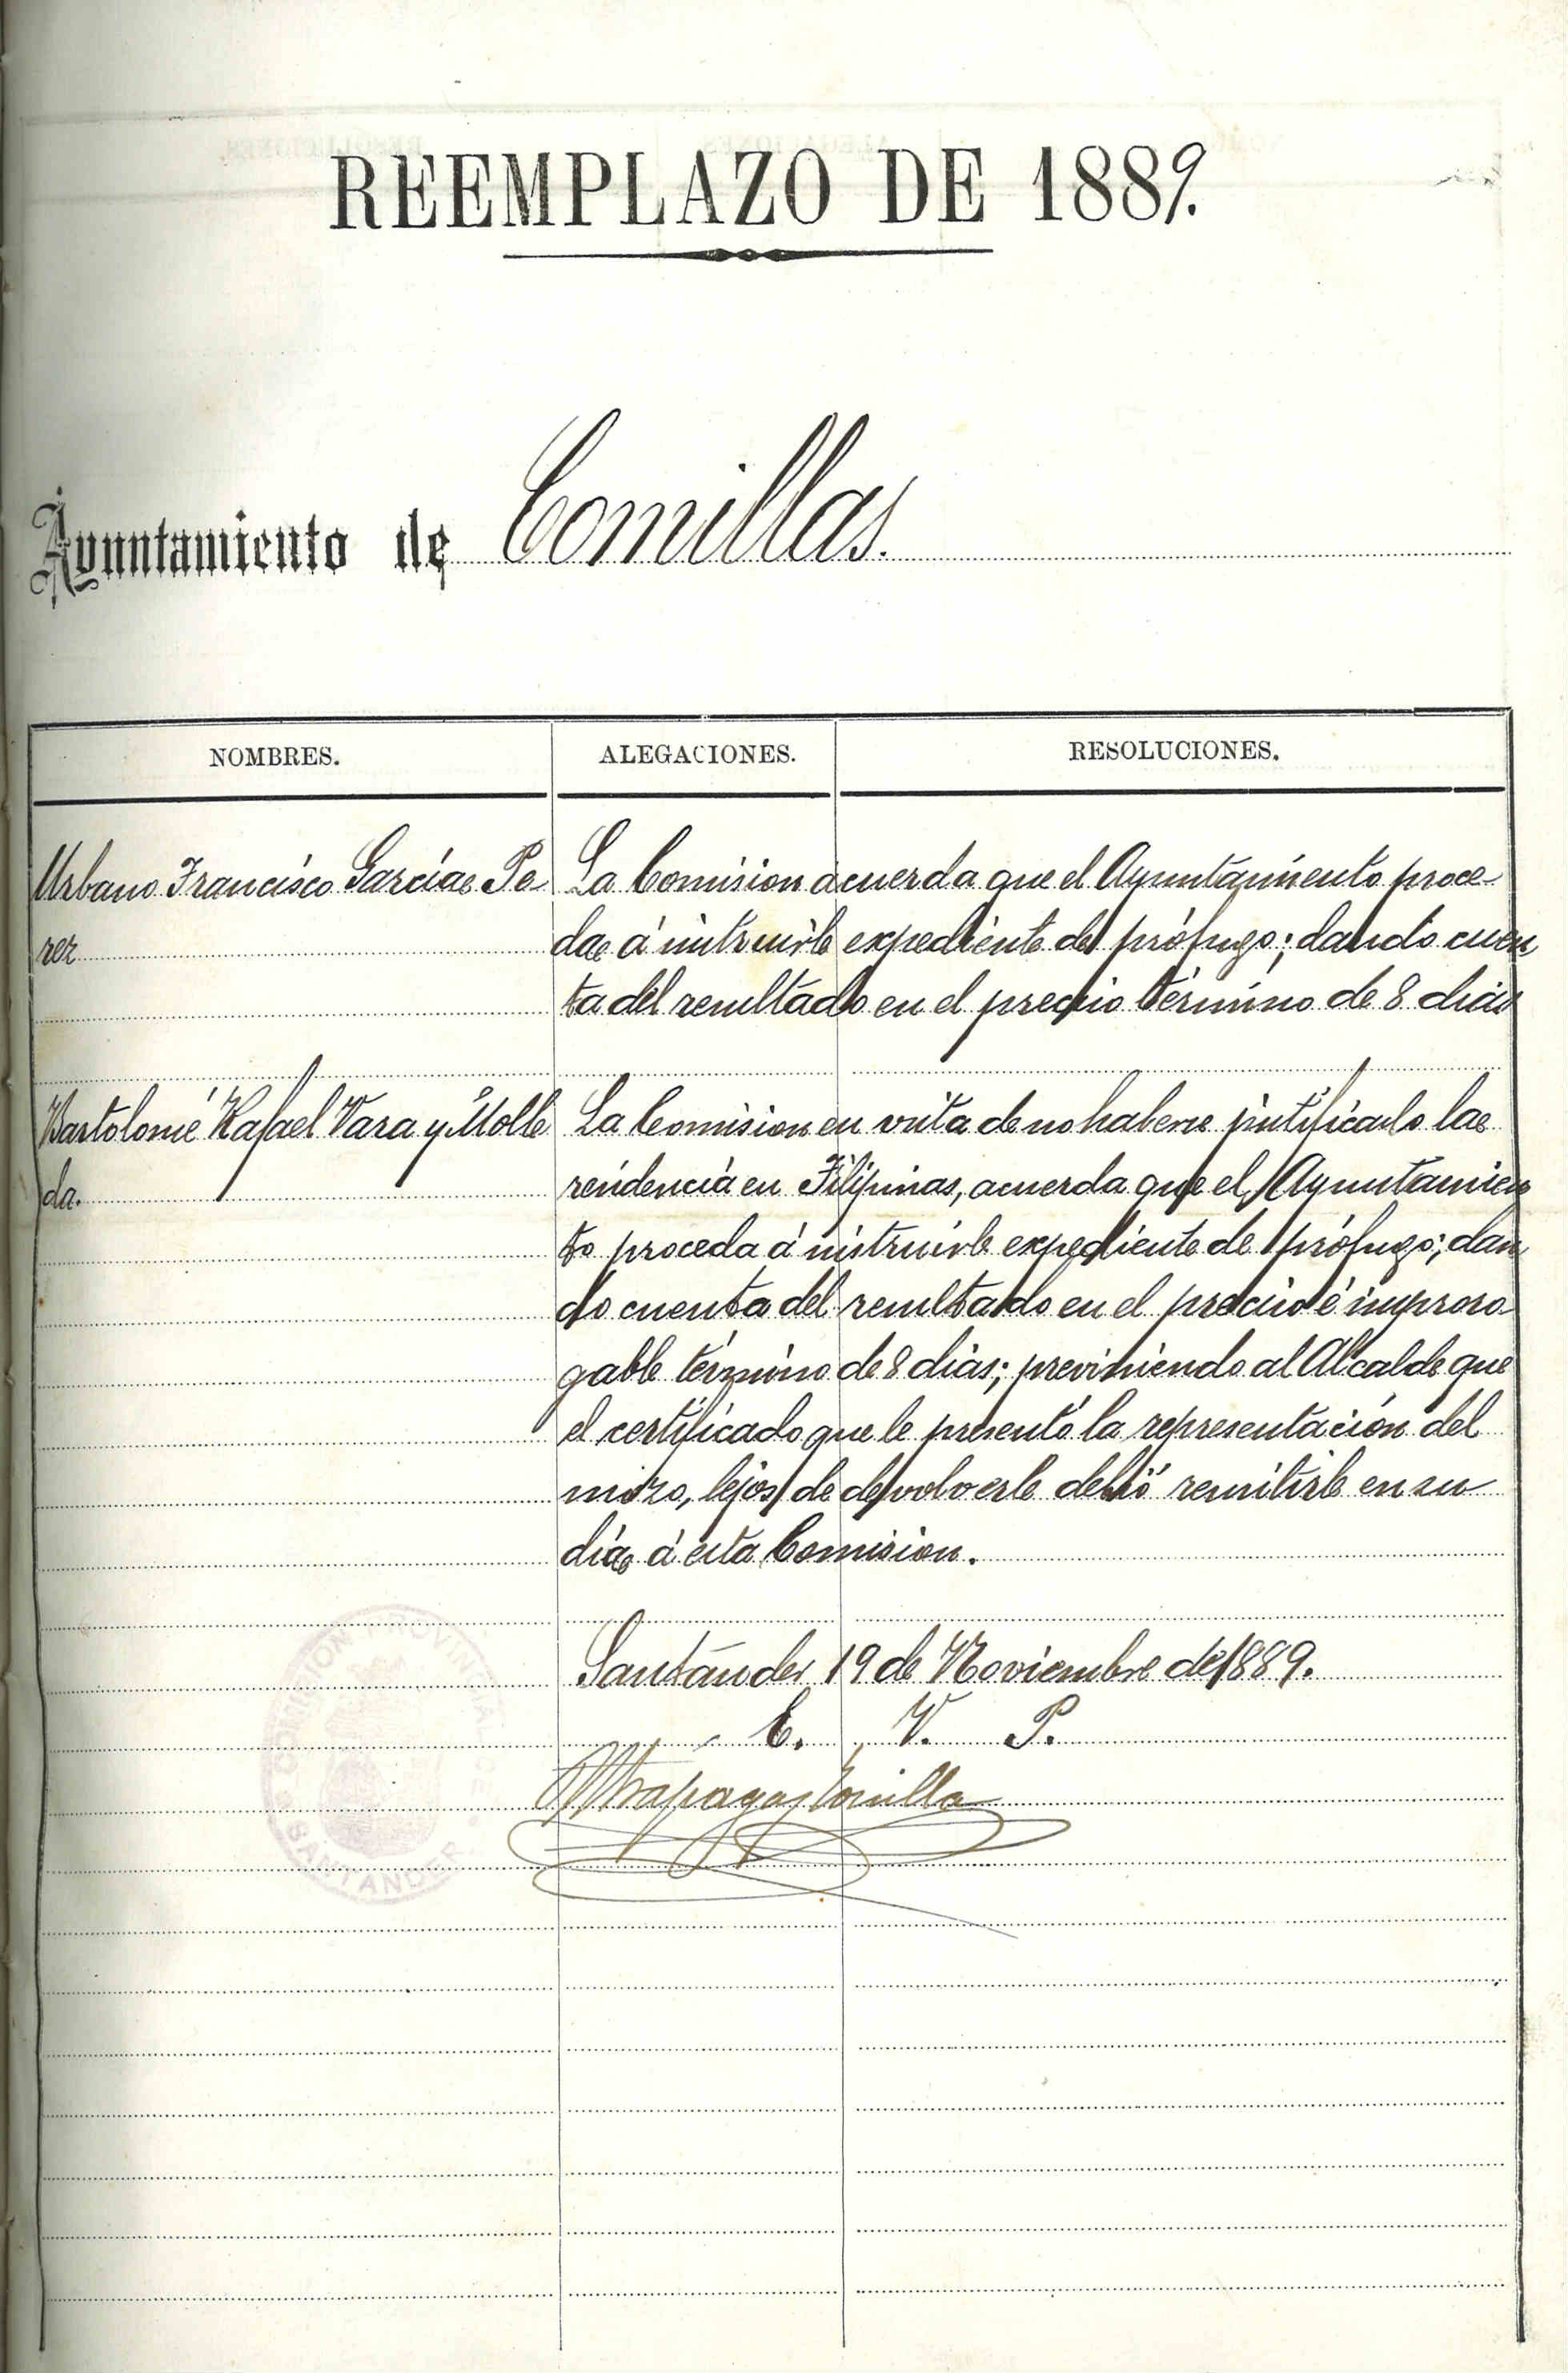 REEMPLAZO DE 1889.
Ayuntamiento de Comillas.
NOMBRES. ALEGACIONES. RESOLUCIONES.
Urbano Francisco García Pe La Comision acuerda que el Ayuntamiento proce-
rez da á instruirle expediente de prófugo; dando cuen
ta del resultado en el preciso término de 8 dias
Bartolomé Rafael Vara y Molle La Comision en vista de no haberse justificado la
da. residencia en Filipinas, acuerda que el Ayuntamien
to proceda á instruirle expediente de prófugo; dan
do cuenta del resultado en el preciso é improro
gable término de 8 dias; previniendo al Alcalde que
el certificado que le presentó la representación del
mozo, lejos de devolverle debió remitirle en su
día á esta Comision.
Santander 19 de Noviembre de 1889.
E. V. P.
COMISION PROVINCIAL DE SANTANDER